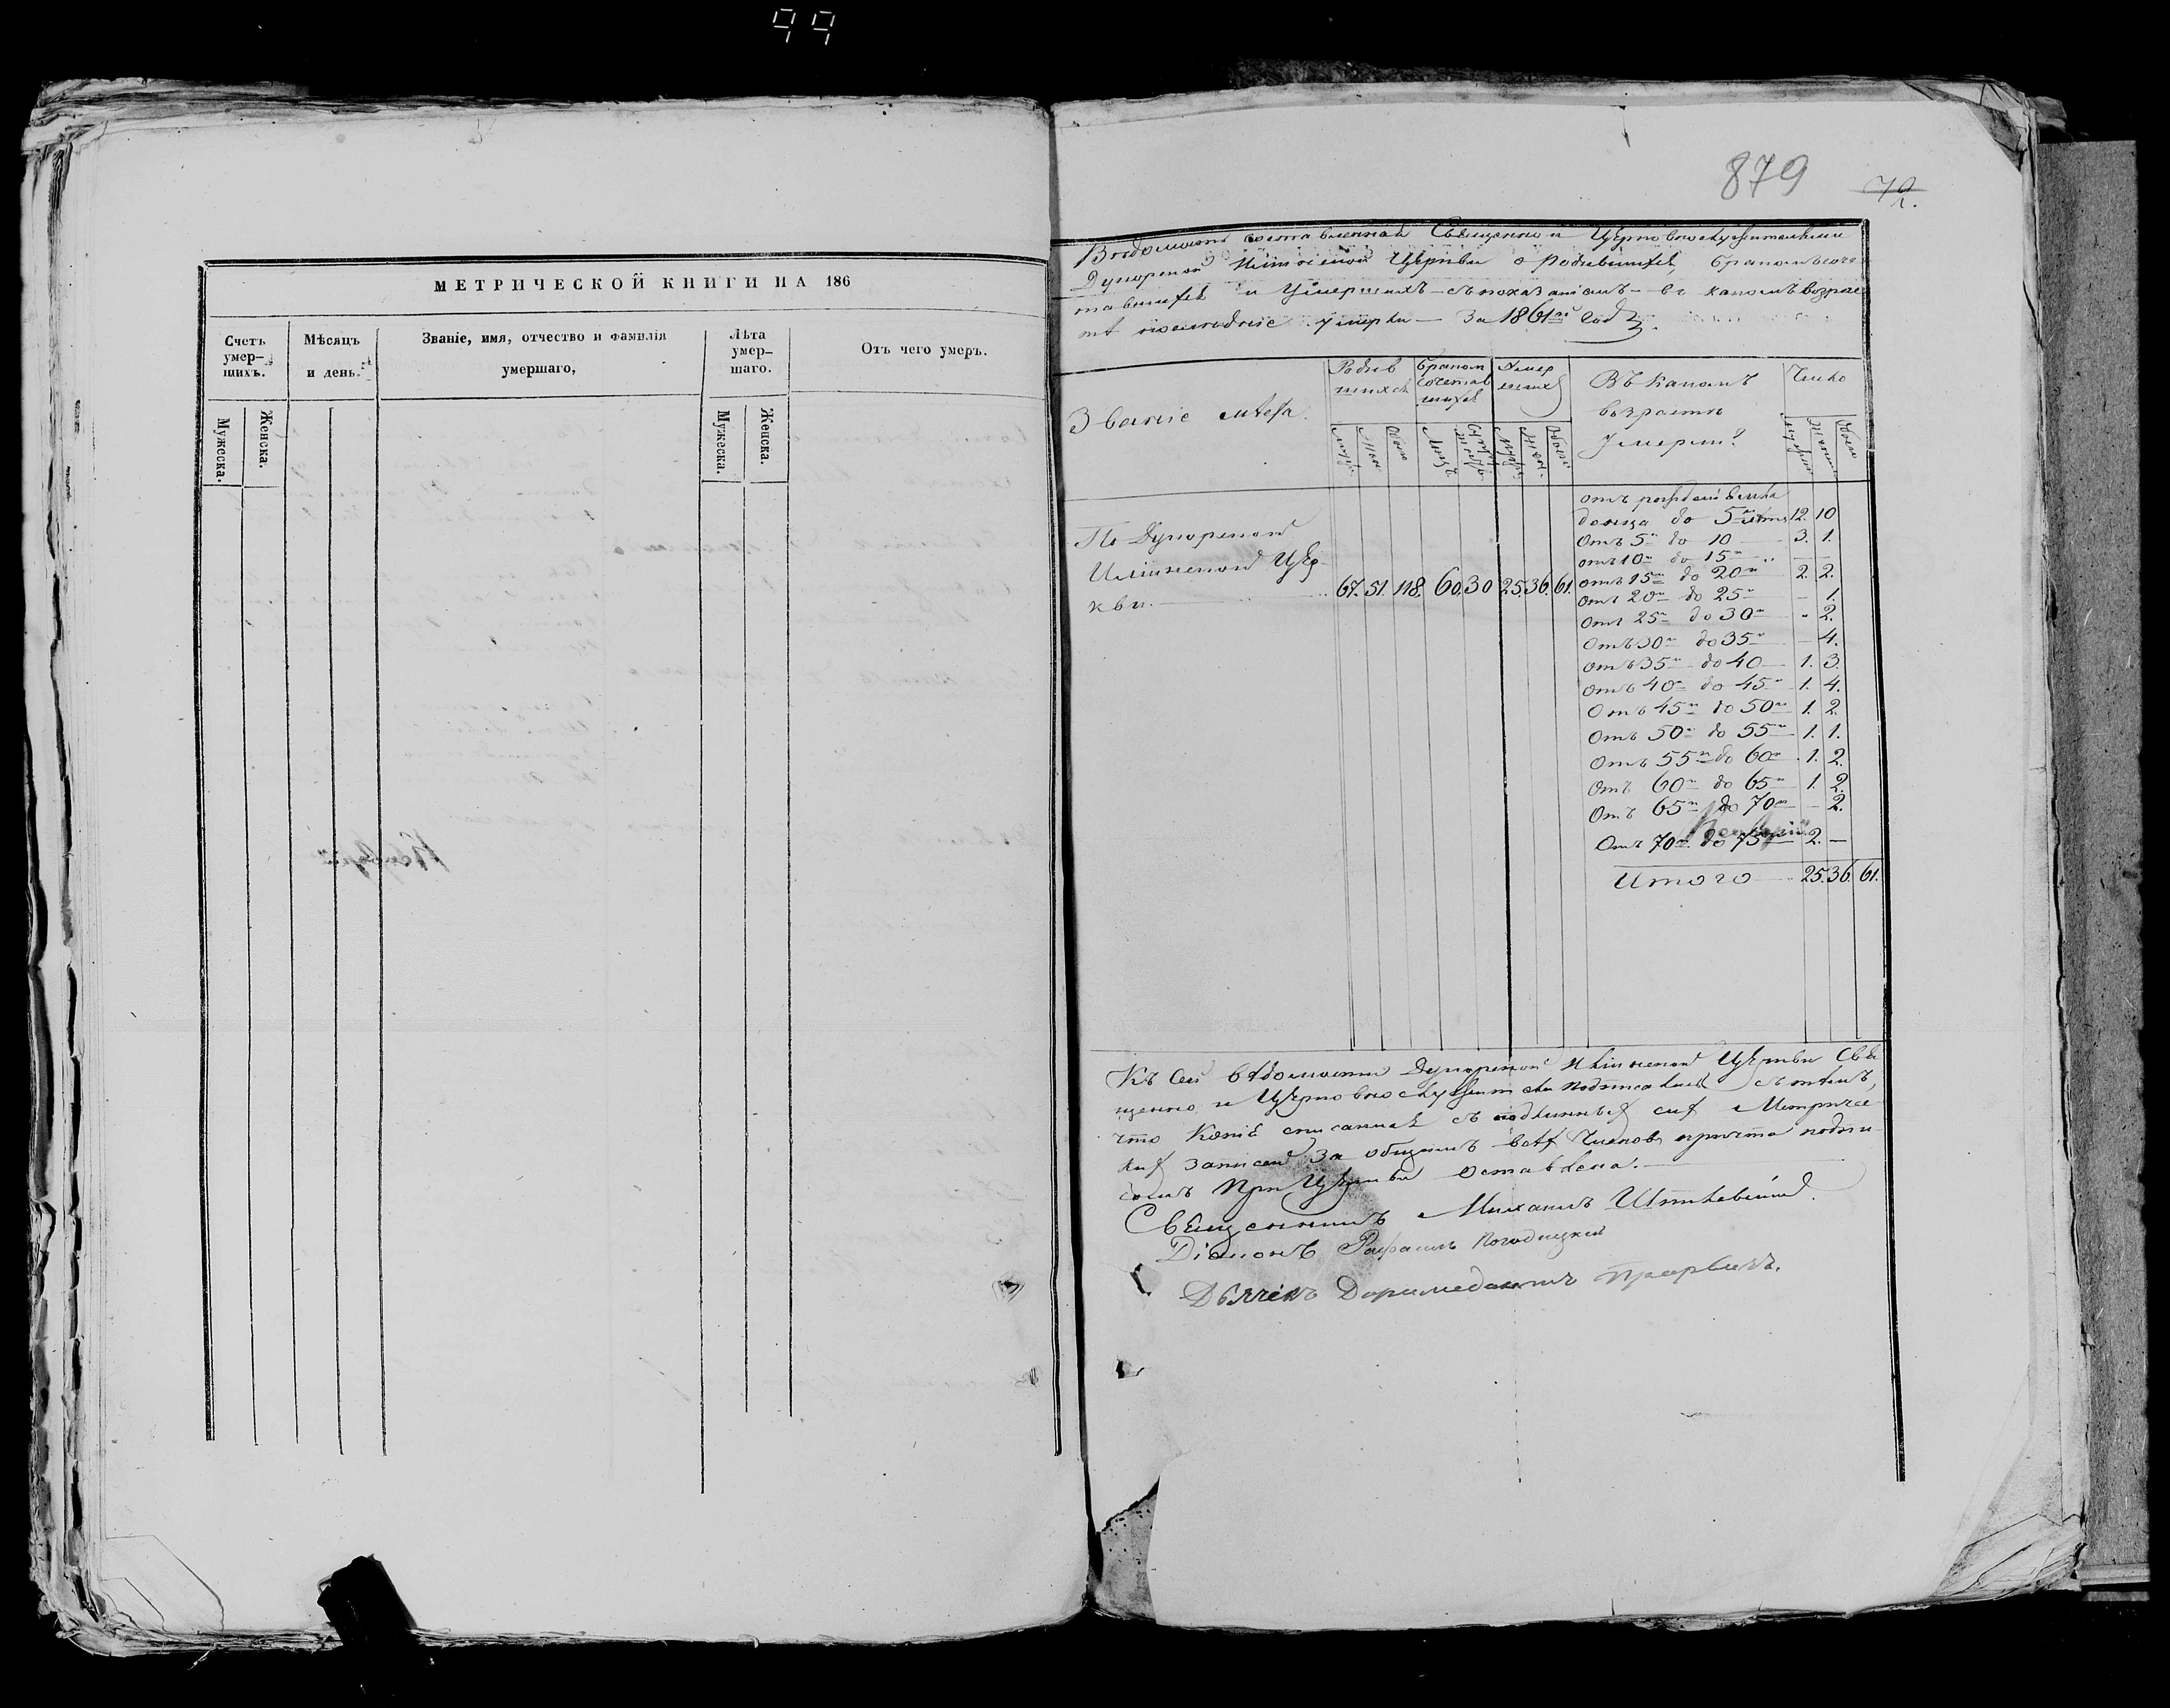 99
МЕТРИЧЕСКОЙ КНИГИ НА 186
Счетъ умер-шихъ.
Мѣсяцъ и день.
Званіе, имя, отчество и фамилія умершаго,
Лѣта умер-шаго.
Отъ чего умеръ.
Мужеска.
Женска.
Мужеска.
Женска.
879
72.
Вѣдомость составленная Священно и Церковнослужителями
Церкви о родившихся, бракомъ соче
тавшихся и умершихъ съ показаніемъ въ какомъ возрас
тѣ умерли За 1861й годъ.
Званіе мѣста.
Родив шихся
Бракомъ сочетав шихся
Умер шихъ
Въ какомъ возрастѣ умерли?
Число
По
Церкви.
67. 51. 118. 60. 30 25. 36. 61.
отъ рожденія
до 5 12. 10
Отъ 5 до 10 3. 1.
отъ 10 до 15 — —
отъ 15 до 20 2. 2.
Отъ 20 до 25 — 1.
Отъ 25 до 30 2.
Отъ 30 до 35 — 4.
Отъ 35 до 40 1. 3.
Отъ 40 до 45 1. 4.
Отъ 45 до 50 1. 2.
Отъ 50 до 55 1. 1.
Отъ 55 до 60 1. 2.
Отъ 60 до 65 1. 2.
Отъ 65 до 70 — 2.
Отъ 70 до 75 2. —
Итого 25. 36. 61.
Къ сей вѣдомости Церкви Свя
щенно и Церковнослужители подписались съ тѣмъ,
что Копія списанная съ подлинныхъ сихъ Метричес
кихъ записей за общимъ всѣхъ Членовъ причта подпи
сомъ при Церкви оставлена.
Священникъ Михаилъ
Діаконъ Рафаилъ
Дьячекъ Доримедонтъ